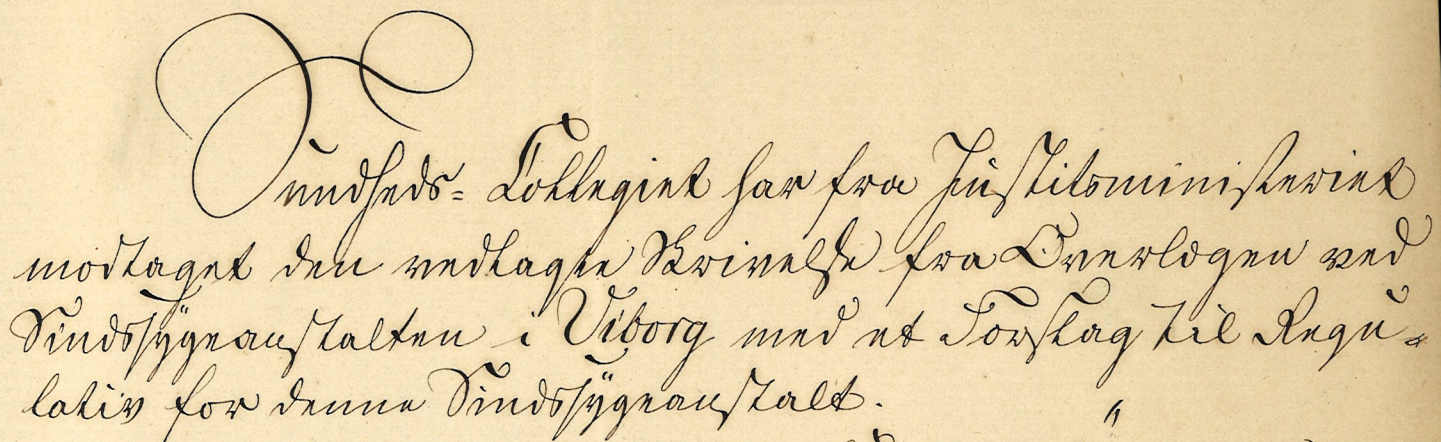 Sundheds= Collegiet har fra Justitsministeriet
modtaget den vedlagte Skrivelse fra Overlægen ved
Sindssygeanstalten i Viborg med et Forslag til Regu=
lativ for denne Sindssygeanstalt. "